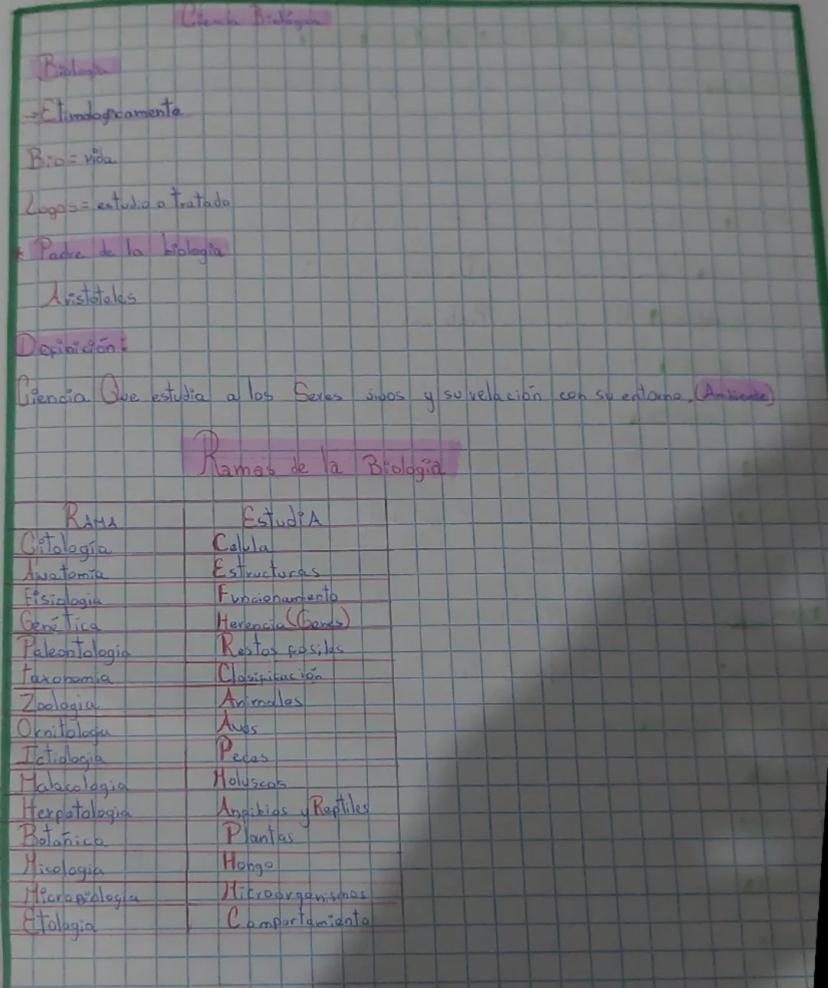 Ciencia Biológica
Biología
→Etimologicamente
Bio= vida
Logos= estudio o tratado
* Padre de la biologia
Aristóteles
Definición:
Ciencia Que estudia a los Seres vivos y su relación con su entorno. (Ambiente)
Ramas de la Biologia
RAMA EstudiA
Citología Celula
Anatomía Estructuras
Fisiologia Funcionamiento
Genética Herencia (Genes)
Paleontologia Restos fosiles
taxonomia Clasificación
Zoologia Animales
Ornitologia Aves
Ictiologia Peces
Malacologia Moluscos
Herpetologia Anfibios y Reptiles
Botánica Plantas
Micologia Hongo
Microbiologia Microorganismos
Etologia Comportamiento